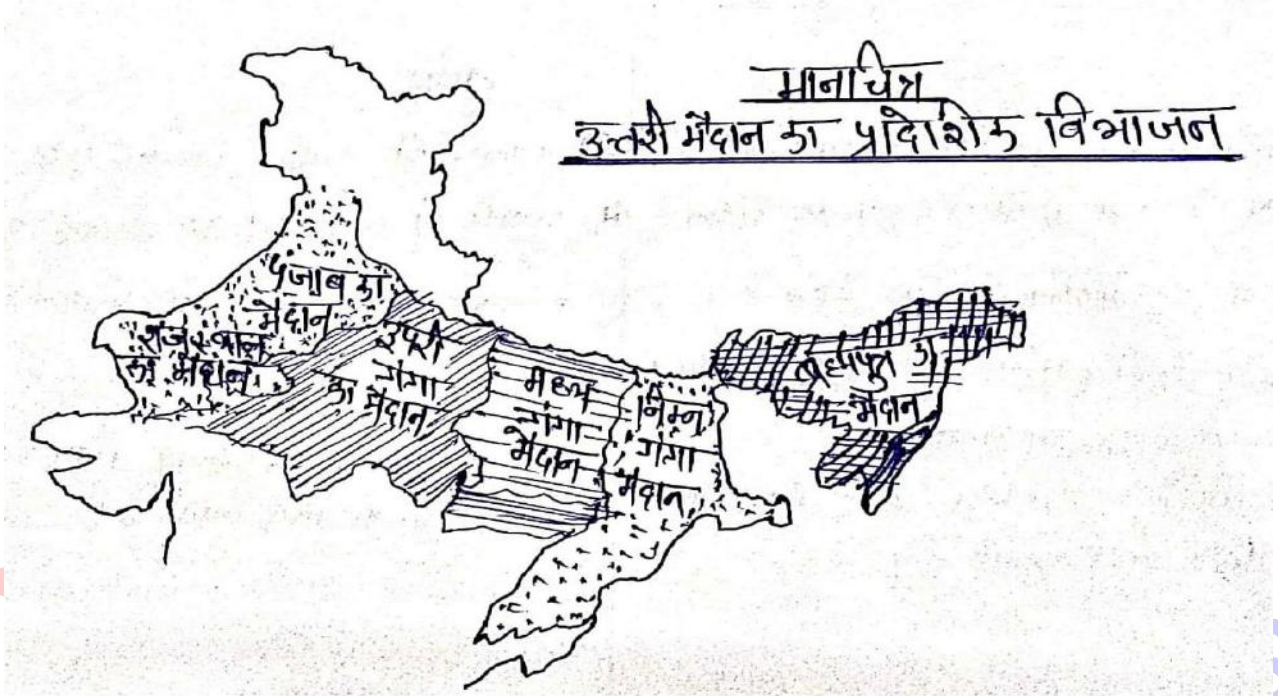 मानचित्र
उत्तरी मैदान का प्रादेशिक विभाजन
पंजाब का
मैदान
राजस्थान
का मैदान
उपरी
गंगा
का मैदान
मध्य
गंगा
मैदान
निम्न
गंगा
मैदान
ब्रह्मपुत्र का
मैदान